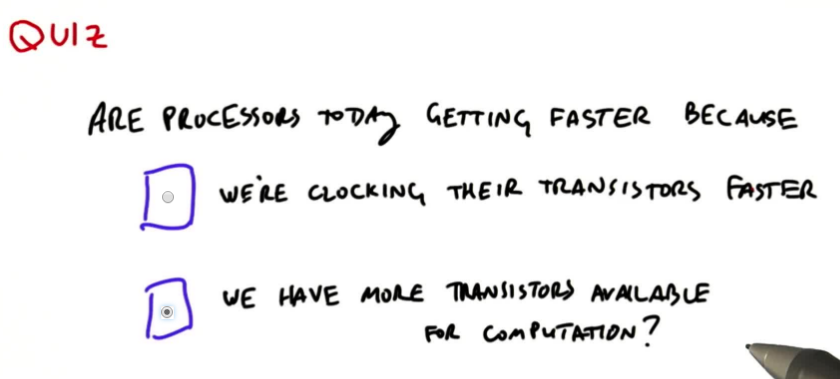 QUIZ
ARE PROCESSORS TODAY GETTING FASTER BECAUSE
WE'RE CLOCKING THEIR TRANSISTORS FASTER
WE HAVE MORE TRANSISTORS AVAILABLE
FOR COMPUTATION?